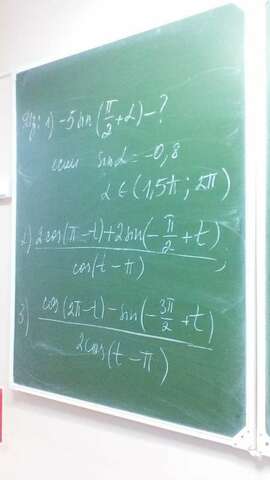 Д/з: 1) -5 sin (π/2 + α) - ?
если sin α = -0,8
α ∈ (1,5π; 2π)
2) (2cos(π-t) + 2sin(-π/2 + t)) / cos(t-π);
3) (cos(2π-t) - sin(-3π/2 + t)) / 2cos(t-π)